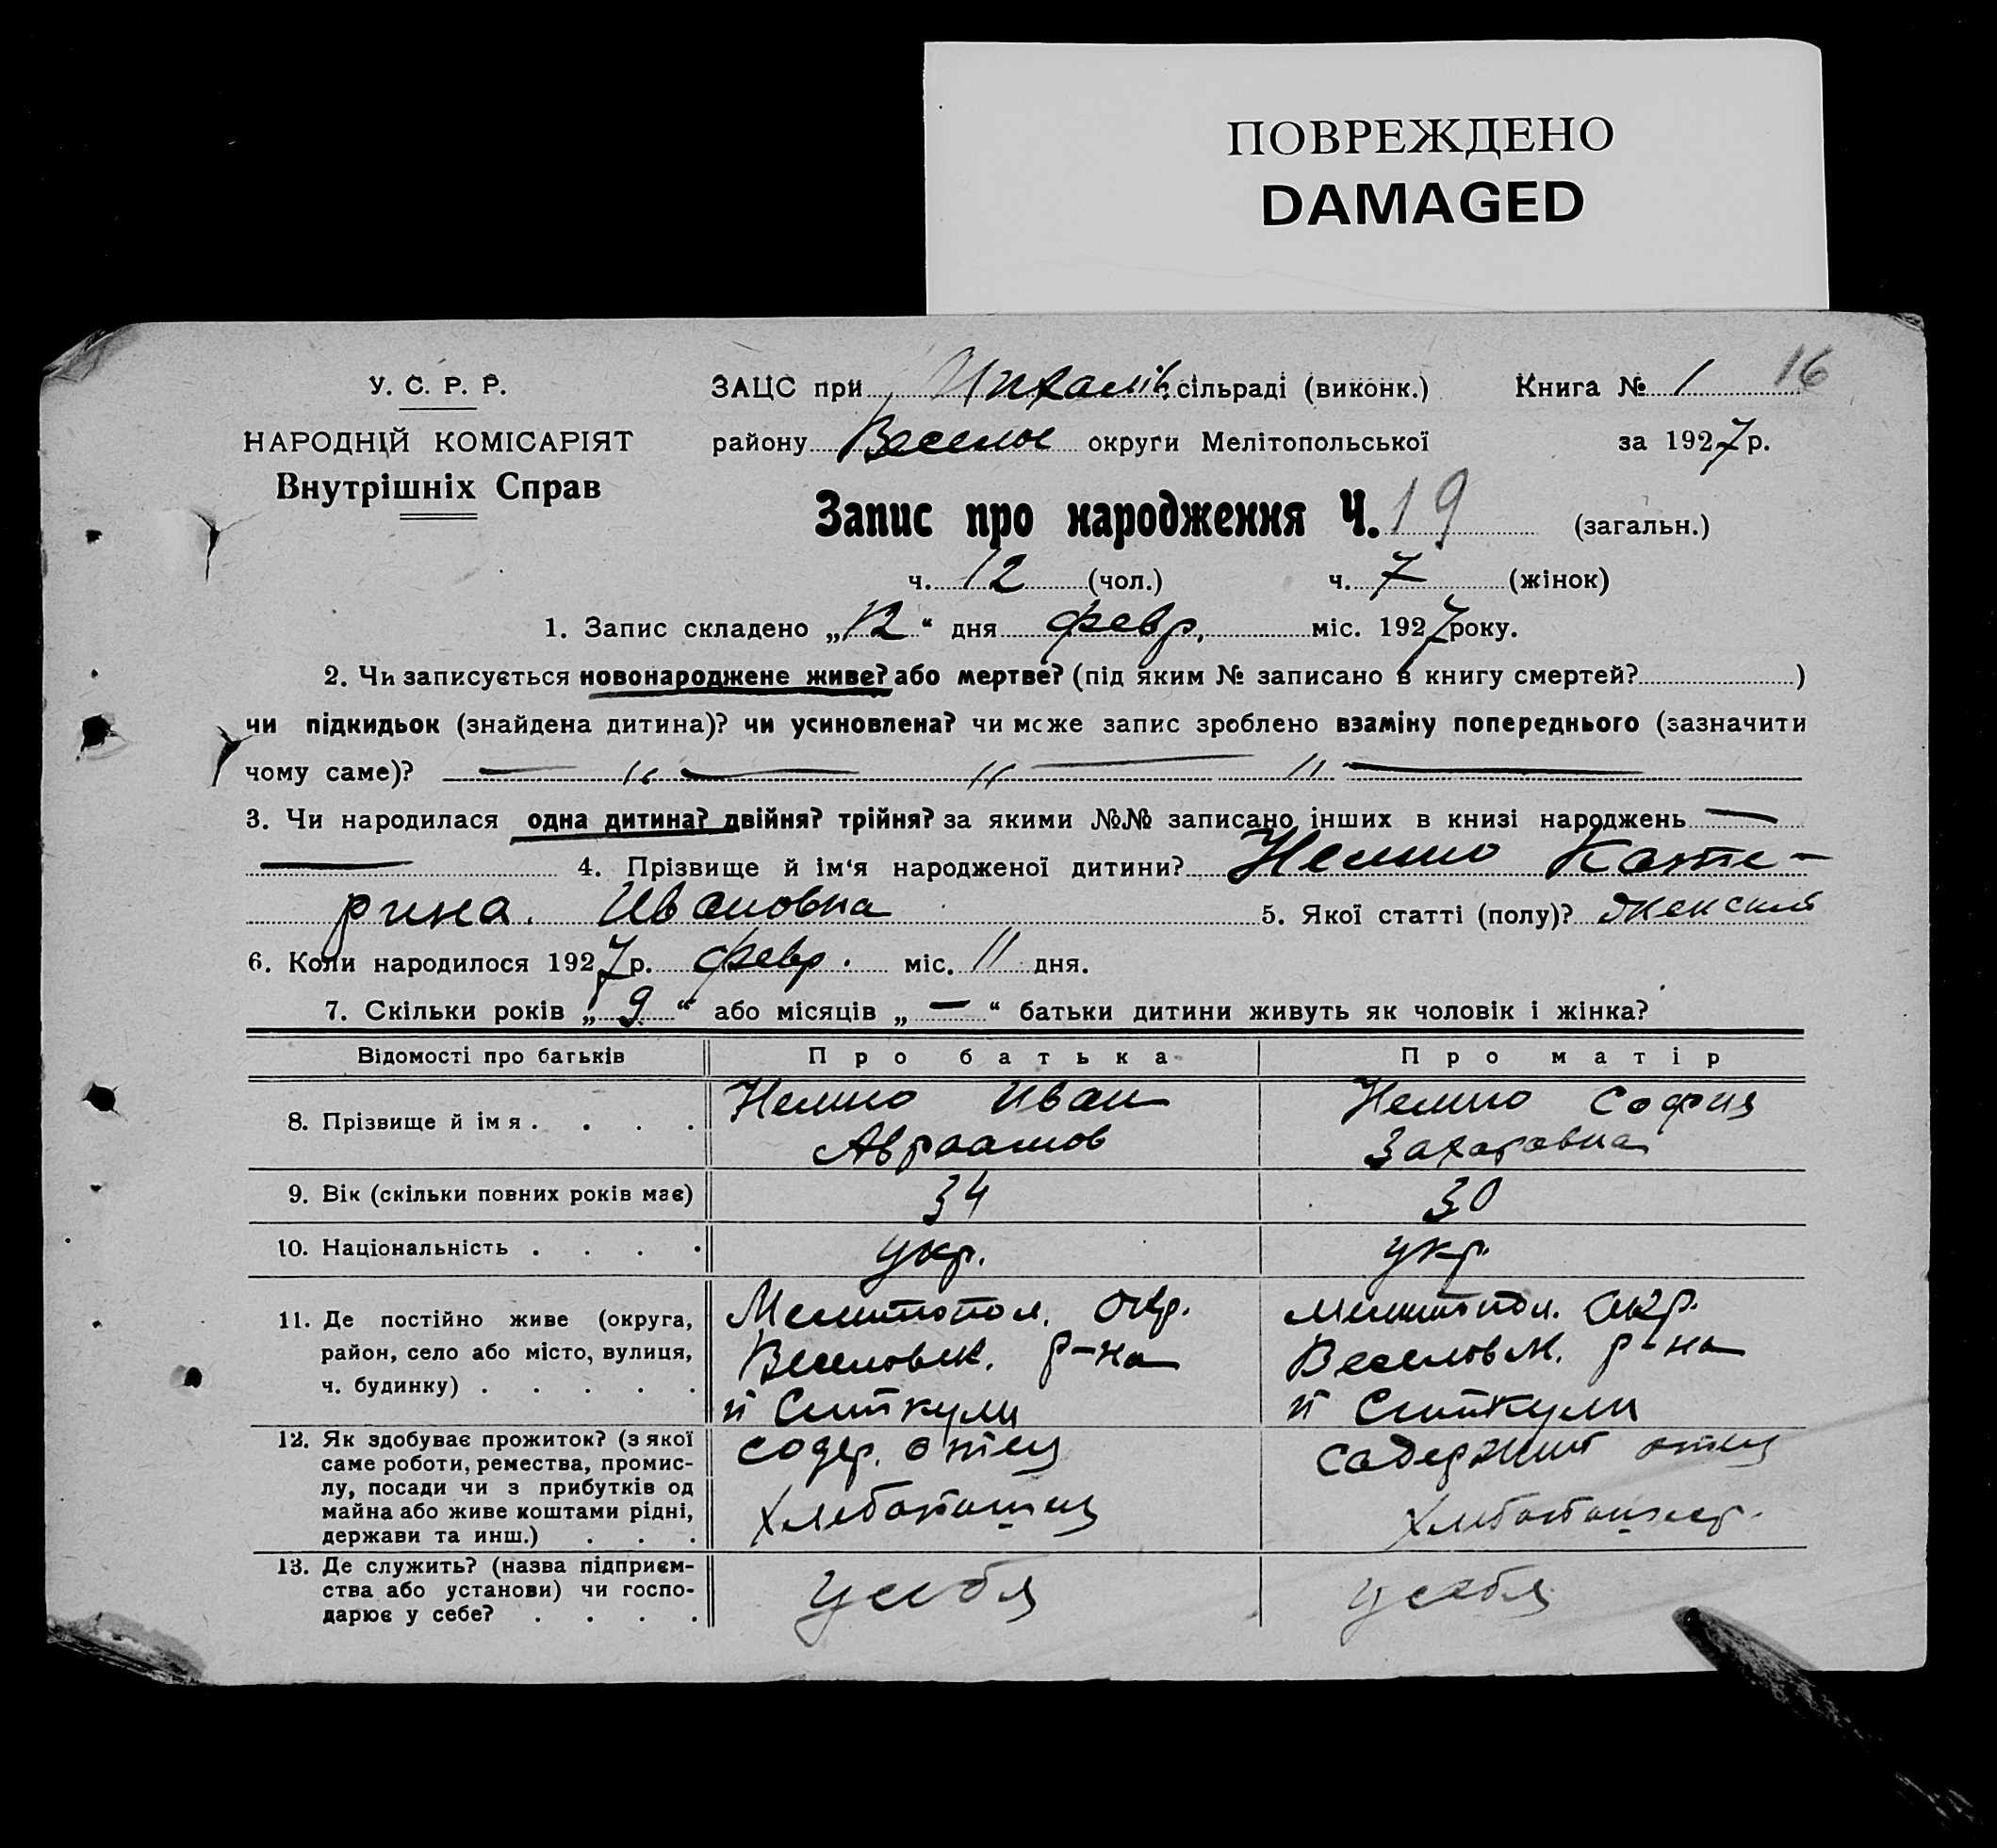 ПОВРЕЖДЕНО
DAMAGED
У. С. Р. Р.
НАРОДНІЙ КОМІСАРІЯТ
Внутрішніх Справ
ЗАЦС при сільраді (виконк.) Книга № 1 16
району Веселое округи Мелітопольської за 1927 р.
Запис про народження Ч. 19 (загальн.)
ч. 12 (чол.) ч. 7 (жінок)
1. Запис складено „12“ дня февр. міс. 1927 року.
2. Чи записується новонароджене живе? або мертве? (під яким № записано в книгу смертей? )
чи підкидьок (знайдена дитина)? чи усиновлена? чи може запис зроблено взаміну попереднього (зазначити
чому саме)? — " — " — " —
3. Чи народилася одна дитина? двійня? трійня? за якими №№ записано інших в книзі народжень —
— 4. Прізвище й ім‘я народженої дитини? Кате-
рина. Ивановна 5. Якої статті (полу)? Женский
6. Коли народилося 1927 р. февр. міс. 11 дня.
7. Скільки років „9“ або місяців „—“ батьки дитини живуть як чоловік і жінка?
Відомості про батьків Про батька Про матір
8. Прізвище й імя . . . . Иван София
Авраамов Захаровна
9. Вік (скільки повних років має) 34 30
10. Національність . . . . укр. укр.
11. Де постійно живе (округа, Мелитопол. окр. Мелитопол. окр.
район, село або місто, вулиця, Веселовск. р-на Веселовск. р-на
ч. будинку) . . . . .
12. Як здобуває прожиток? (з якої содер. отец содержит отец
саме роботи, ремества, промис-
лу, посади чи з прибутків од
майна або живе коштами рідні, Хлебопашец
держави та инш.) . . .
13. Де служить? (назва підприєм-
ства або установи) чи госпо- у себя у себя
дарює у себе? . . . .